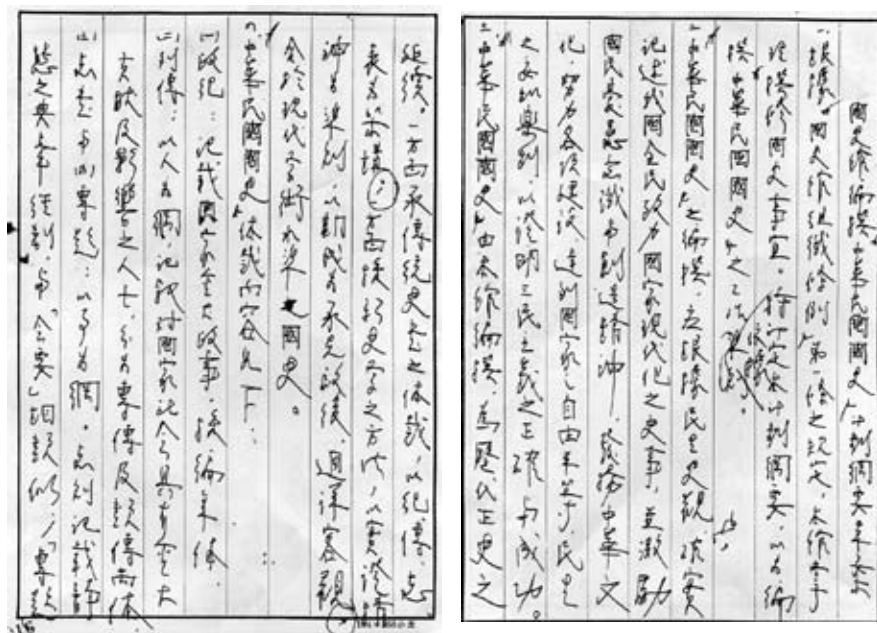 國史館編撰「中華民國國史」計劃綱要草案
一、根據「國史館組織條例」第一條之規定,本館掌
理撰修國史事宜。特訂定本計劃綱要,以為編
撰「中華民國國史」之
一、「中華民國國史」之編撰,應根據民生史觀,確實
記述我國全民致力國家現代化之史事,並激勵
國民憂患意識與創造精神,發揚中華文
化,努力各項建設,達到國家之自由平等,民生
之安和樂利,以證明三民主義之正確與成功。
一、「中華民國國史」由本館編撰,為歷代正史之
延續。一方面承傳統史書之体裁,以紀、傳、志、
表為架構;一方面採新史學之方法,以實證精
神為準則,以期成為承先啟後,週詳客觀
合於現代學術水準之國史。
「中華民國國史」体裁內容凡下:
政紀:記載國家重大政事,採編年体。
列傳:以人為綱,記載對國家社會具有重大
貢獻及影響之人士,分為專傳及類傳兩体
志書與專題:以事為綱。志則記載靜
態之典章經制,與「會要」相類似,「專題